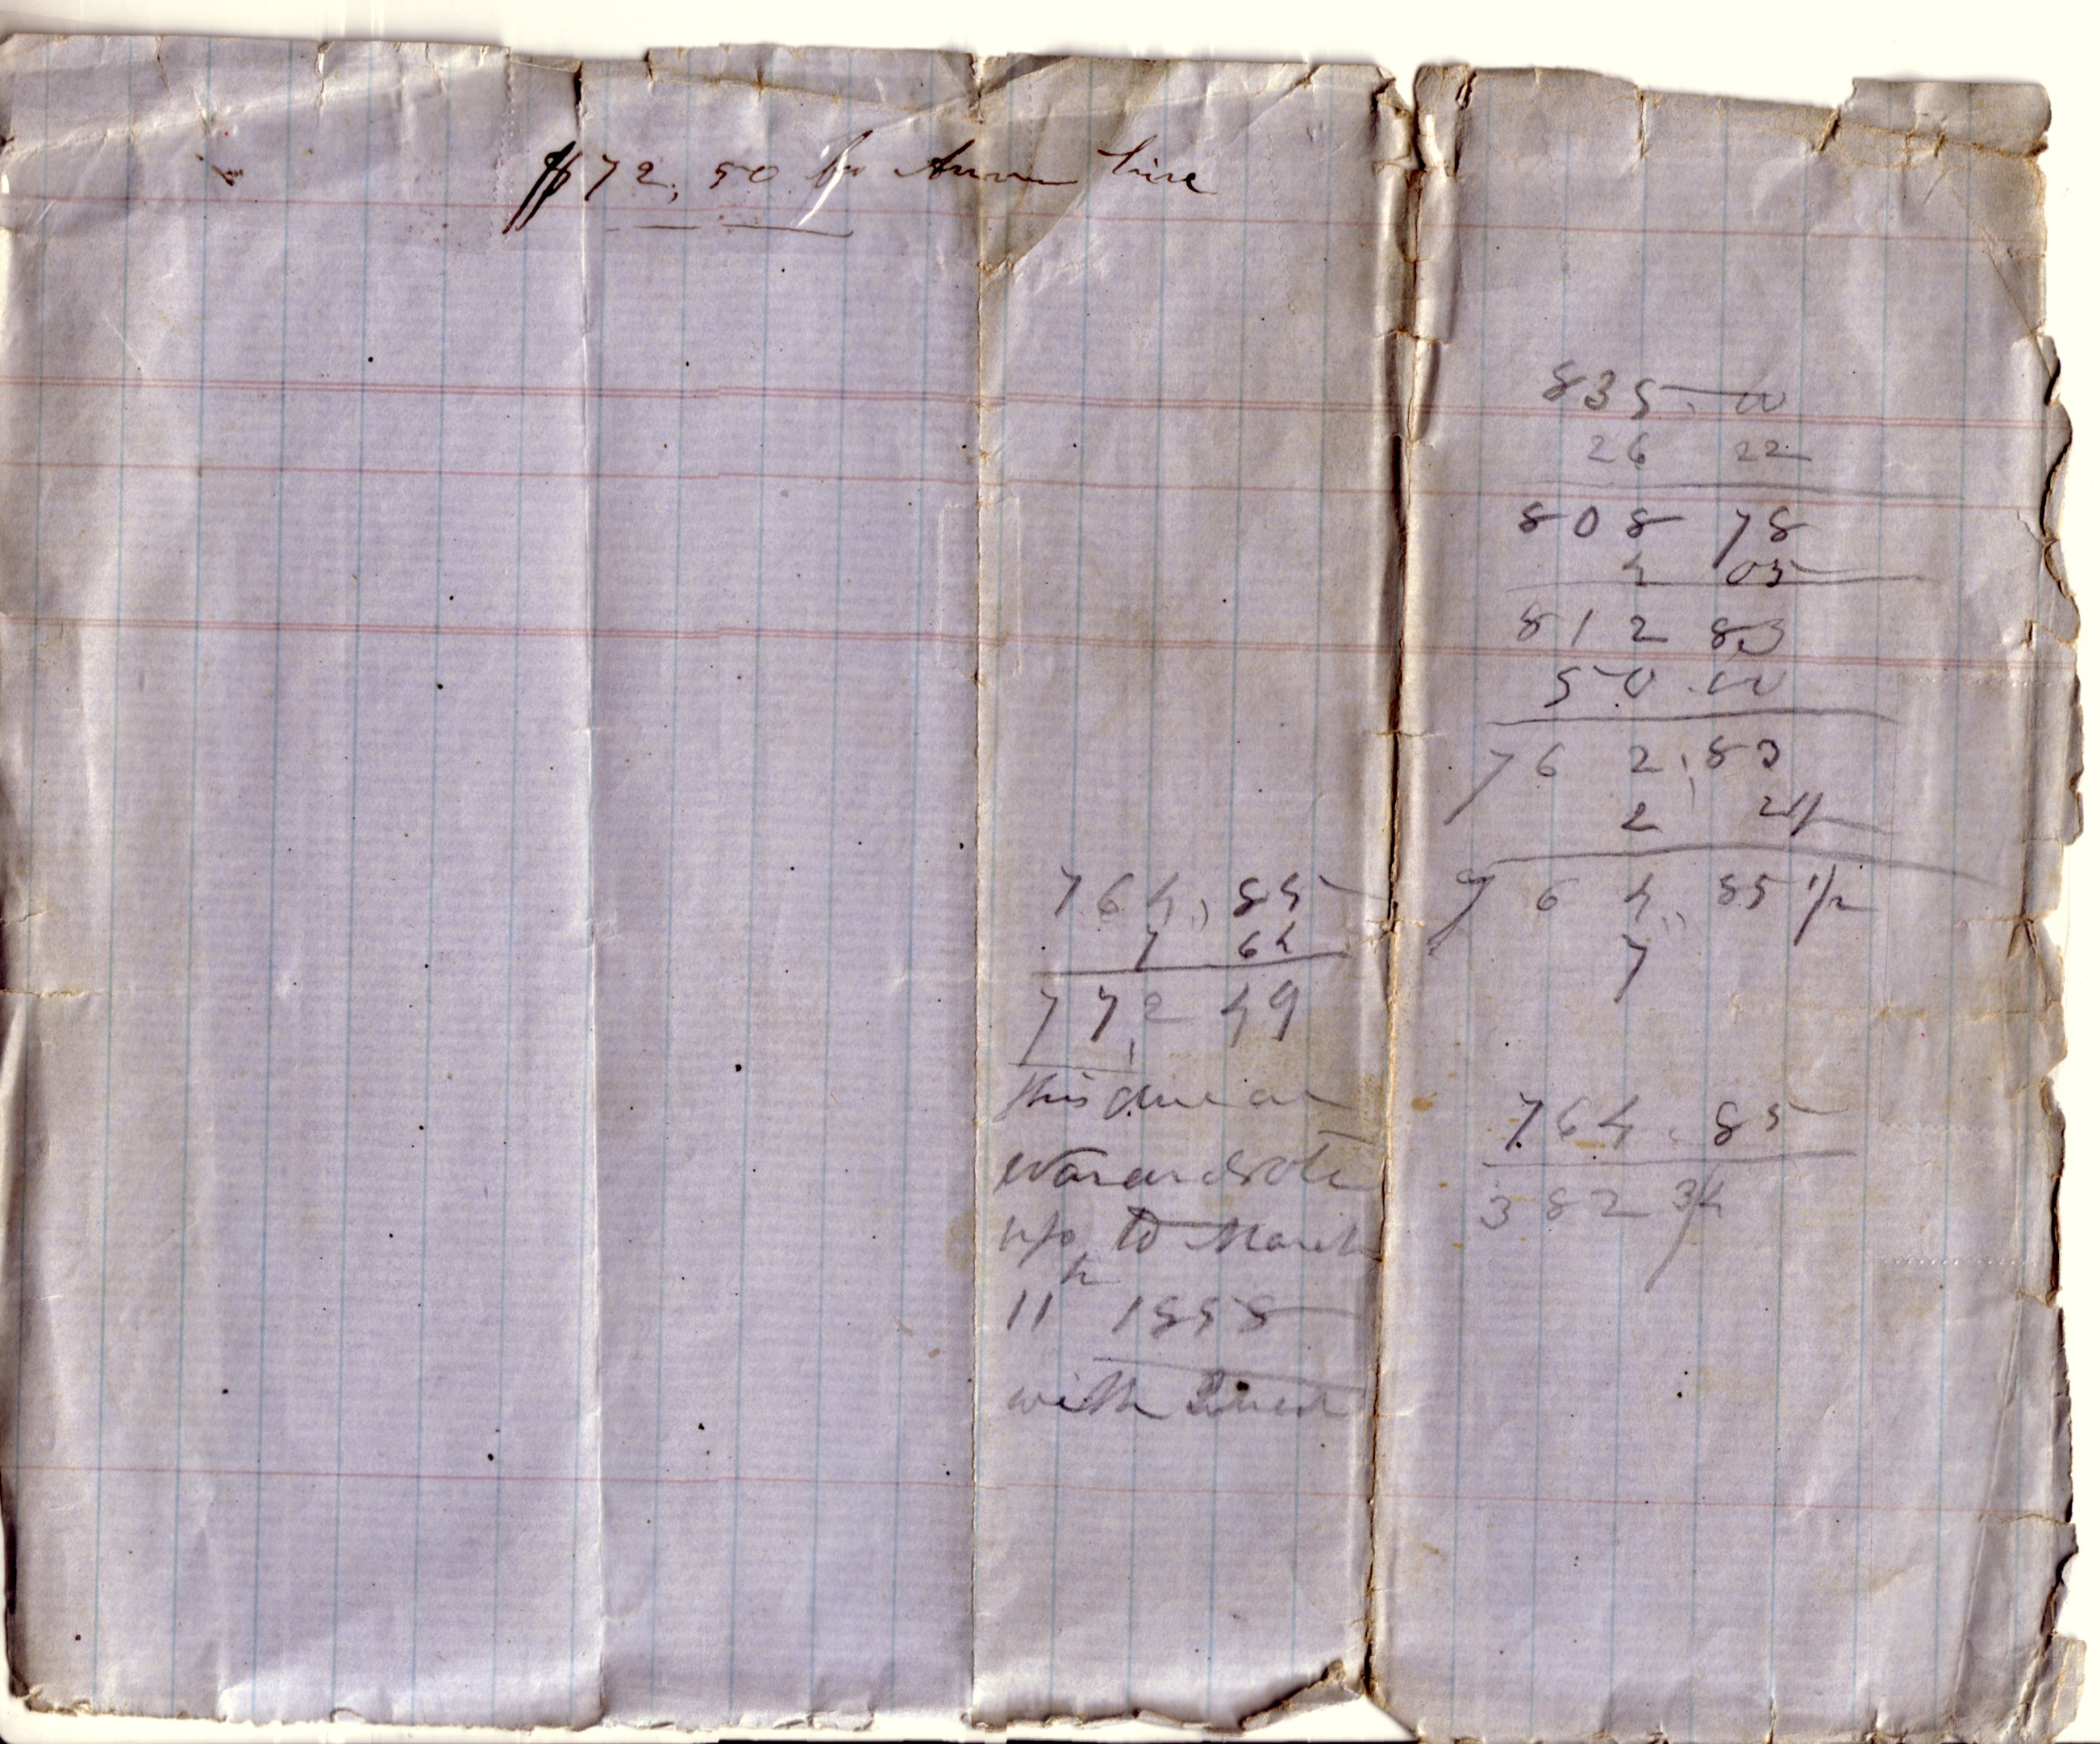 $72,50 for Ann hire
764,, 85
7 64
772 49
this due on
up to March
11th 1858
with
835. 00
26 22
808 78
4 05
812 83
50.00
762,83
2
764,, 85 1/2
7
764. 85
382 34